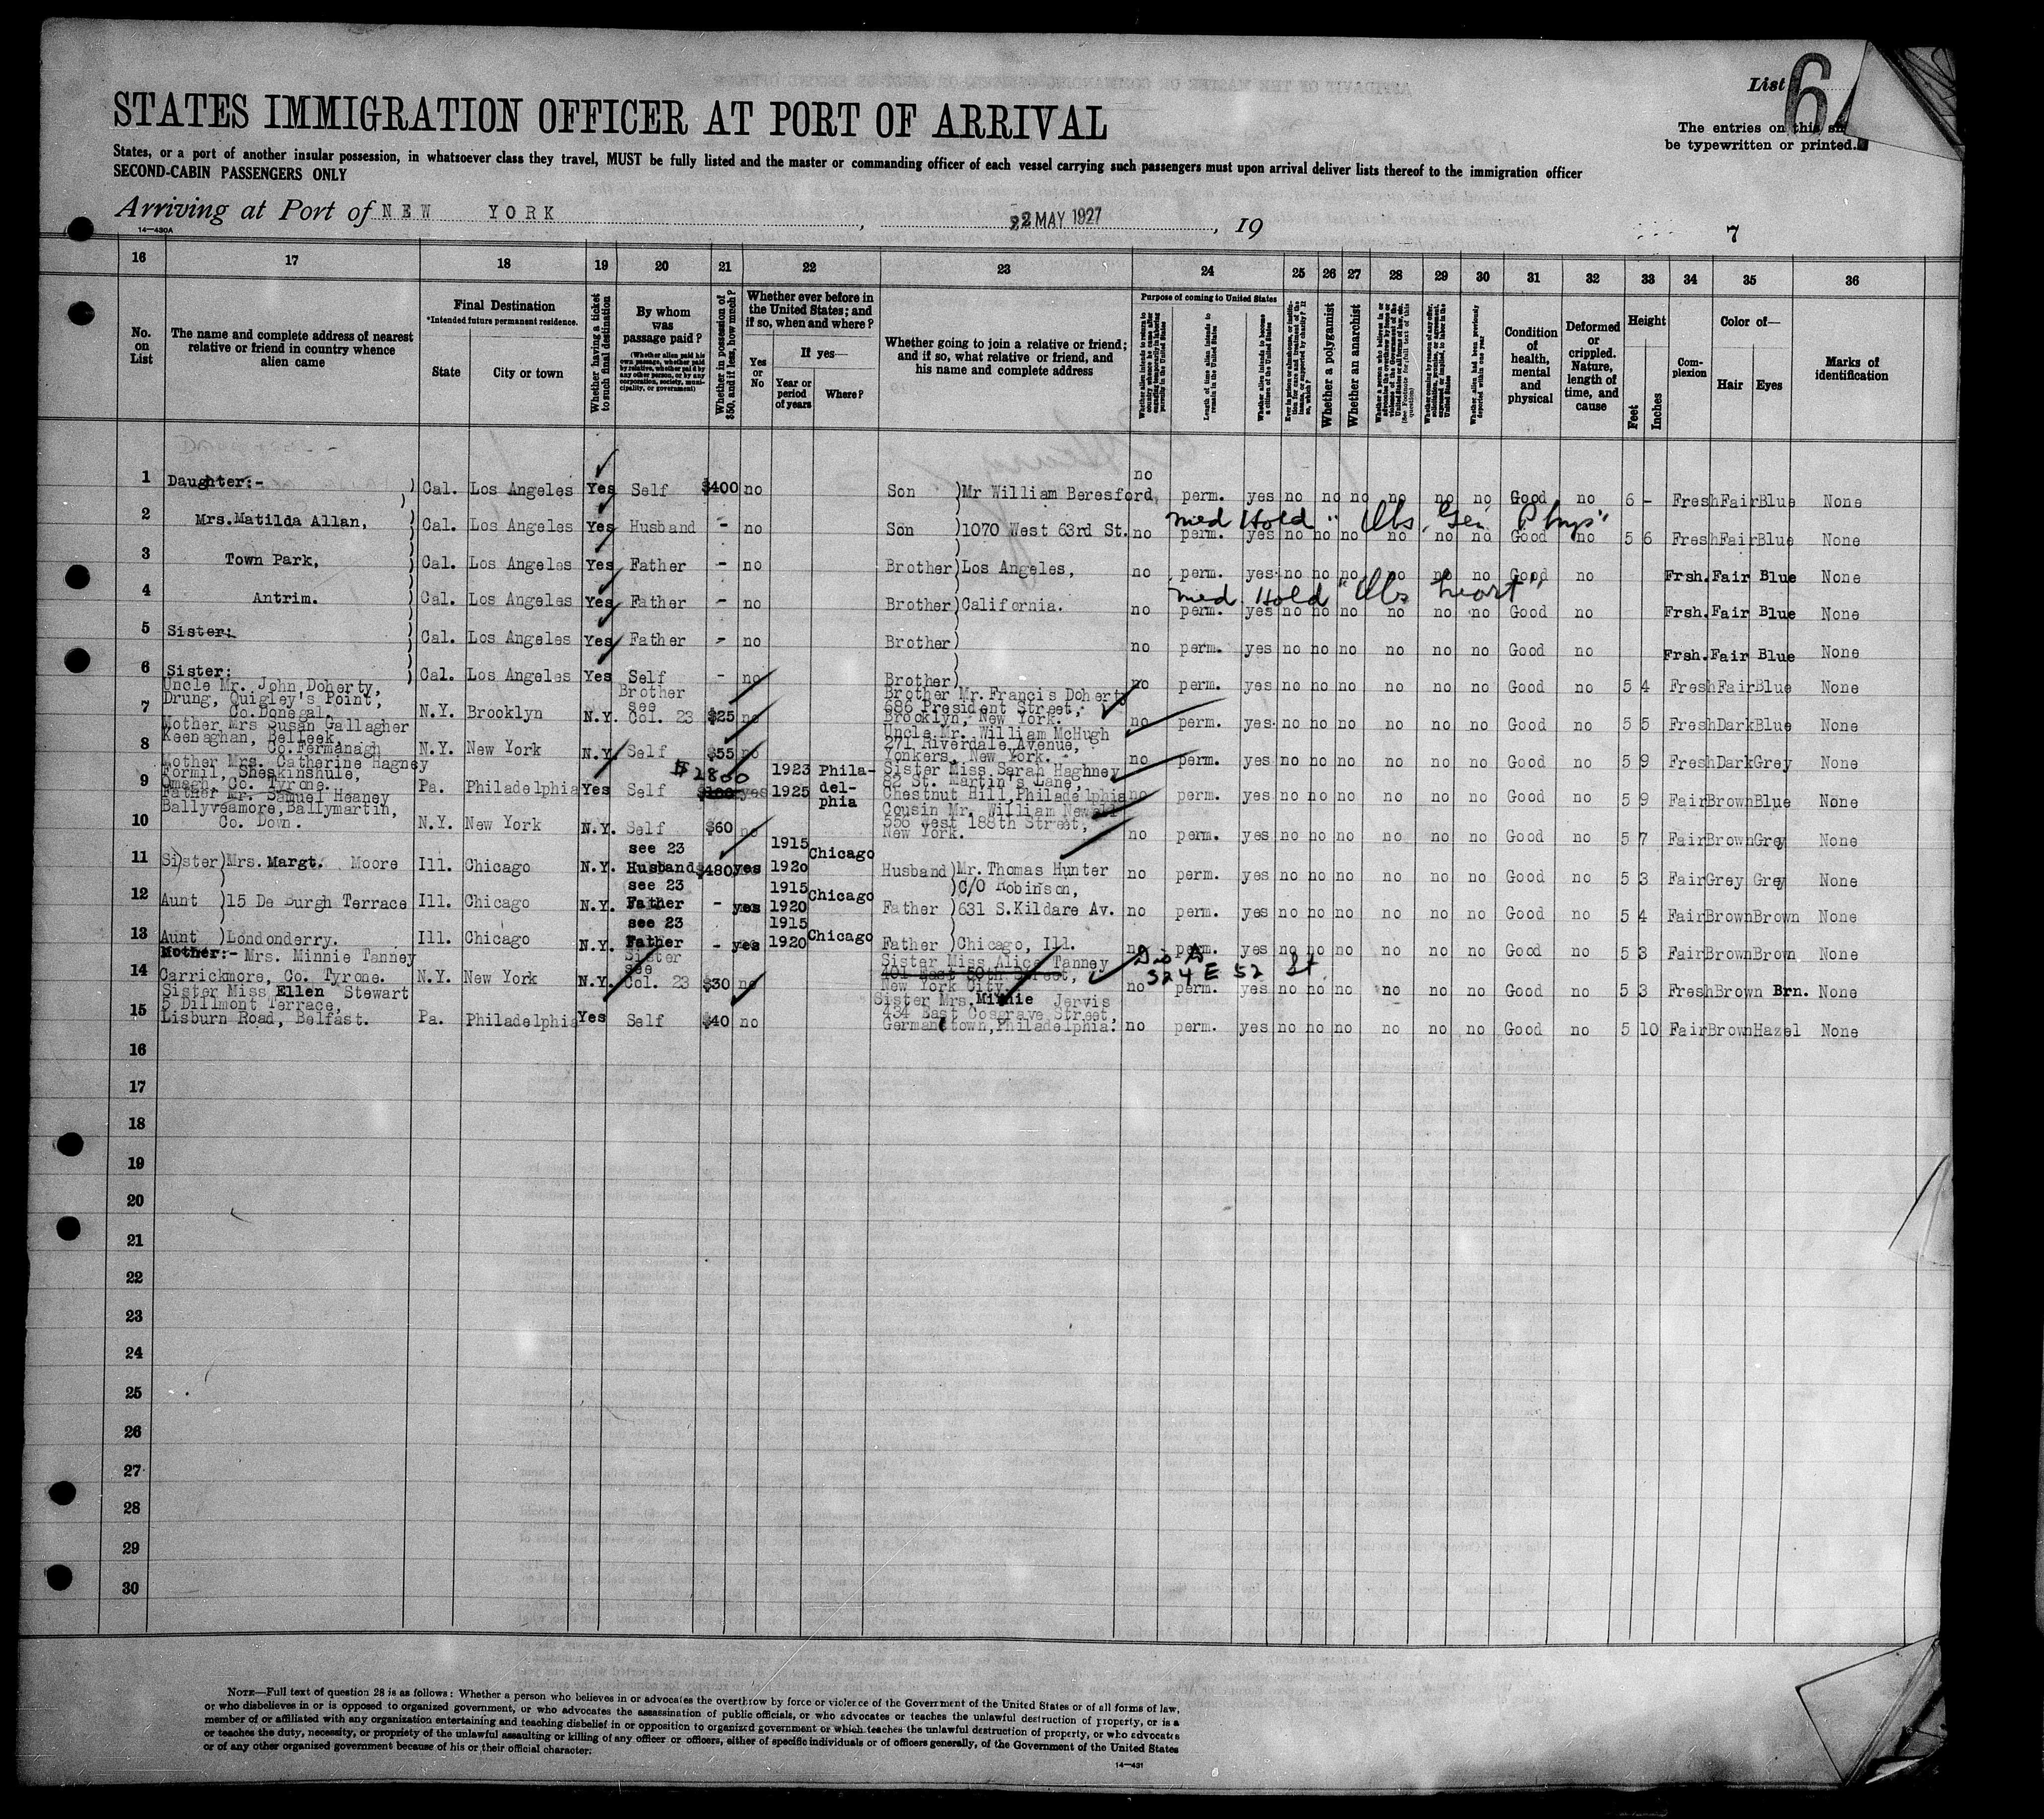 List 6
STATES IMMIGRATION OFFICER AT PORT OF ARRIVAL
The entries on this
be typewritten or printed.
States, or a port of another insular possession, in whatsoever class they travel, MUST be fully listed and the master or commanding officer of each vessel carrying such passengers must upon arrival deliver lists thereof to the immigration officer
SECOND-CABIN PASSENGERS ONLY
Arriving at Port of NEW YORK, 22 MAY 1927, 19 7
14—430A
16 17 18 19 20 21 22 23 24 25 26 27 28 29 30 31 32 33 34 35 36
No. on List
The name and complete address of nearest relative or friend in country whence alien came
Final Destination
*Intended future permanent residence.
State
City or town
Whether having a ticket to such final destination
By whom was passage paid?
(Whether alien paid his own passage, whether paid by relative, whether paid by any other person, or by any corporation, society, municipality, or government)
Whether in possession of $50, and if less, how much?
Whether ever before in the United States; and if so, when and where?
Yes or No
If yes—
Year or period of years
Where?
Whether going to join a relative or friend; and if so, what relative or friend, and his name and complete address
Purpose of coming to United States
Length of time alien intends to remain in the United States
Whether alien intends to become a citizen of the United States
Whether a polygamist
Whether an anarchist
Whether alien had been previously deported within one year
Condition of health, mental and physical
Deformed or crippled. Nature, length of time, and cause
Height
Feet
Inches
Complexion
Color of—
Hair
Eyes
Marks of identification
1 Daughter:- ) Cal. Los Angeles Yes Self $400 no Son )Mr William Beresford, no perm. yes no no no no no no Good no 6 - Fresh Fair Blue None
med Hold "Obs. Gen Phys"
2 Mrs. Matilda Allan, ) Cal. Los Angeles Yes Husband - no Son )1070 West 63rd St. no perm. yes no no no no no no Good no 5 6 Fresh Fair Blue None
3 Town Park, ) Cal. Los Angeles Yes Father - no Brother )Los Angeles, no perm. yes no no no no no no Good no Frsh. Fair Blue None
med Hold "Obs heart"
4 Antrim. ) Cal. Los Angeles Yes Father - no Brother )California. no perm. yes no no no no no no Good no Frsh. Fair Blue None
5 Sister: ) Cal. Los Angeles Yes Father - no Brother ) no perm. yes no no no no no no Good no Frsh. Fair Blue None
6 Sister: ) Cal. Los Angeles Yes Self - no Brother ) no perm. yes no no no no no no Good no 5 4 Fresh Fair Blue None
Uncle Mr. John Doherty, Brother Brother Mr. Francis Doherty
Drung, Quigley's Point, see 686 President Street,
7 Co. Donegal. N.Y. Brooklyn N.Y. Col. 23 $25 no Brooklyn, New York. no perm. yes no no no no no no Good no 5 5 Fresh Dark Blue None
Mother Mrs Susan Gallagher Uncle Mr. William McHugh
Keenaghan, Belleek, 271 Riverdale Avenue,
8 Co. Fermanagh N.Y. New York N.Y. Self $55 no Yonkers, New York. no perm. yes no no no no no no Good no 5 9 Fresh Dark Grey None
Mother Mrs. Catherine Hagney $2800 1923 Phila- Sister Miss Sarah Haghney
Formil, Sheskinshule, 82 St. Martin's Lane,
9 Omagh, Co. Tyrone. Pa. Philadelphia Yes Self $100 yes 1925 delphia Chestnut Hill, Philadelphia no perm. yes no no no no no no Good no 5 9 Fair Brown Blue None
Father Mr. Samuel Heaney Cousin Mr. William
Ballyveamore, Ballymartin, 556 West 188th Street,
10 Co. Down. N.Y. New York N.Y. Self $60 no New York. no perm. yes no no no no no no Good no 5 7 Fair Brown Grey None
see 23 1915
11 Sister )Mrs. Margt. Moore Ill. Chicago N.Y. Husband $480 yes 1920 Chicago Husband )Mr. Thomas Hunter no perm. yes no no no no no no Good no 5 3 Fair Grey Grey None
see 23 1915 )C/O Robinson,
12 Aunt )15 De Burgh Terrace Ill. Chicago N.Y. Father - yes 1920 Chicago Father )631 S.Kildare Av. no perm. yes no no no no no no Good no 5 4 Fair Brown Brown None
see 23 1915
13 Aunt )Londonderry. Ill. Chicago N.Y. Father - yes 1920 Chicago Father )Chicago, Ill. no perm. yes no no no no no no Good no 5 3 Fair Brown Brown None
Mother:- Mrs. Minnie Tanney Sister Sister Miss Alice Tanney
see 401 East 50th Street, 324 E 52 St.
14 Carrickmore, Co. Tyrone. N.Y. New York N.Y. Col. 23 $30 no New York City. no perm. yes no no no no no no Good no 5 3 Fresh Brown Brn. None
Sister Miss Ellen Stewart Sister Mrs. Minnie Jervis
5 Dillmont Terrace, 434 East Cosgrave Street,
15 Lisburn Road, Belfast. Pa. Philadelphia Yes Self $40 no Germantown, Philadelphia. no perm. yes no no no no no no Good no 5 10 Fair Brown Hazel None
16
17
18
19
20
21
22
23
24
25
26
27
28
29
30
NOTE—Full text of question 28 is as follows: Whether a person who believes in or advocates the overthrow by force or violence of the Government of the United States or of all forms of law,
or who disbelieves in or is opposed to organized government, or who advocates the assassination of public officials, or who advocates or teaches the unlawful destruction of property, or is a
member of or affiliated with any organization entertaining and teaching disbelief in or opposition to organized government or which teaches the unlawful destruction of property, or who advocates
or teaches the duty, necessity, or propriety of the unlawful assaulting or killing of any officer or officers, either of specific individuals or of officers generally, of the Government of the United States
or of any other organized government because of his or their official character.
14—431